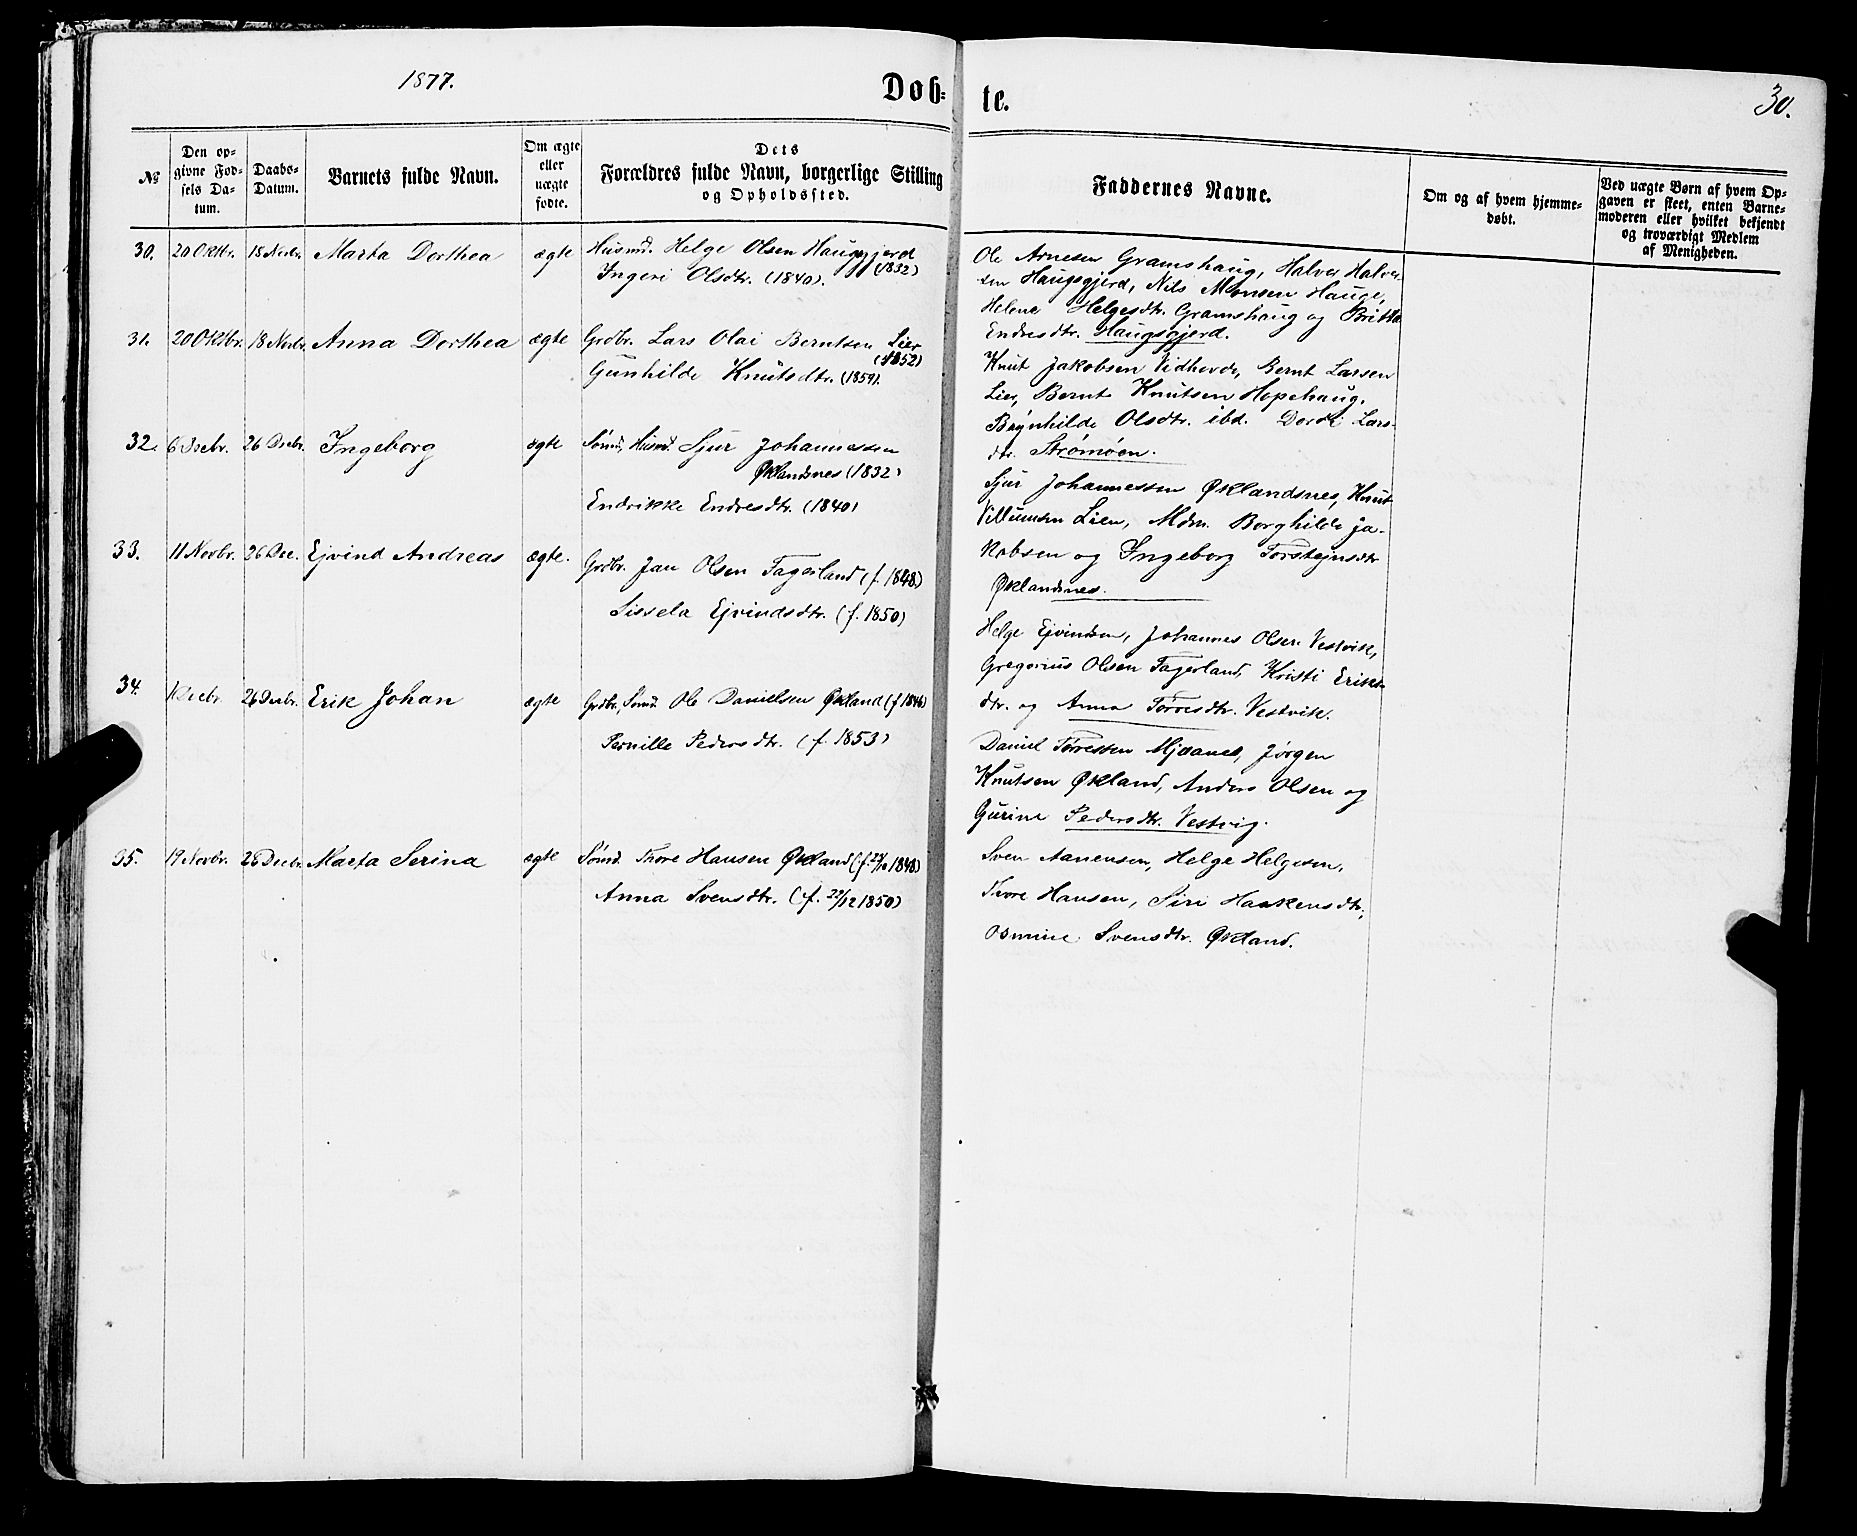 1877.
Døb-
te.
30.
№
Den op-
givne Fød-
sels Da-
tum.
Daabs-
Datum.
Barnets fulde Navn.
Om ægte
eller
uægte
fødte.
Dets
Forældres fulde Navn, borgerlige Stilling
og Opholdssted.
Faddernes Navne.
Om og af hvem hjemme-
døbt.
Ved uægte Børn af hvem Op-
gaven er skeet, enten Barne-
moderen eller hvilket bekjendt
og troværdigt Medlem
af Menigheden.
30. 20 Oktbr. 18 Novbr. Marta Dorthea ægte Husmd. Helge Olsen Haugsgjerd
(1832)
Ingeri Olsdtr. (1840).
Ole Arnesen Gramshaug, Halvor Halvor-
sen Haugsgjerd, Nils Monsen Hauge,
Helena Helgesdtr. Gramshaug og Britha
Endresdtr. Haugsgjerd.
31. 20 Oktbr. 18 Novbr. Anna Dorthea ægte Grdbr. Lars Olai Berntsen Lier
(1852)
Gunhilde Knutsdtr. (1859).
Knut Jakobsen Vidhovde, Bernt Larsen
Lier, Bernt Knutsen Hopehaug.
Brynhilde Olsdtr. ibd. Dorde Lars-
dtr. Strømøen.
32. 6 Decbr. 26 Decbr. Ingeborg ægte Sømd, Husmd. Sjur Johannessen
Øklandsnes (1832)
Endrikke Endresdtr. (1840)
Sjur Johannessen Øklandsnes, Knut
Villumsen Lien, Mdm. Borghilde Ja-
kobsen og Ingeborg Torstejnsdtr
Øklandsnes.
33. 11 Novbr. 26 Dec. Ejvind Andreas ægte. Grdbr. Jan Olsen Fagerland (f. 1848.)
Sissela Ejvindsdtr. (f. 1850)
Helge Ejvindsen, Johannes Olsen Vestvik,
Gregorius Olsen Fagerland, Kristi Eriks-
dtr. og Anna Tørresdtr. Vestvik.
34. 1 Decbr. 26 Decbr. Erik Johan ægte Grdbr, Sømd. Ole Danielsen Økland (f 1846)
Pernille Pedersdtr. (f. 1853)
Daniel Tørressen Mjaanes, Jørgen
Knutsen Økland, Anders Olsen og
Gurine Pedersdtr. Vestvig.
35. 19 Novbr. 26 Decbr. Marta Serina ægte Sømd. Thore Hansen Økland (f. 1848)
Anna Svensdtr. (f. 22/12 1850)
Sven Aanensen, Helge Helgesen,
Thore Hansen, Siri Haakensdtr,
Osmine Svensdtr. Økland.